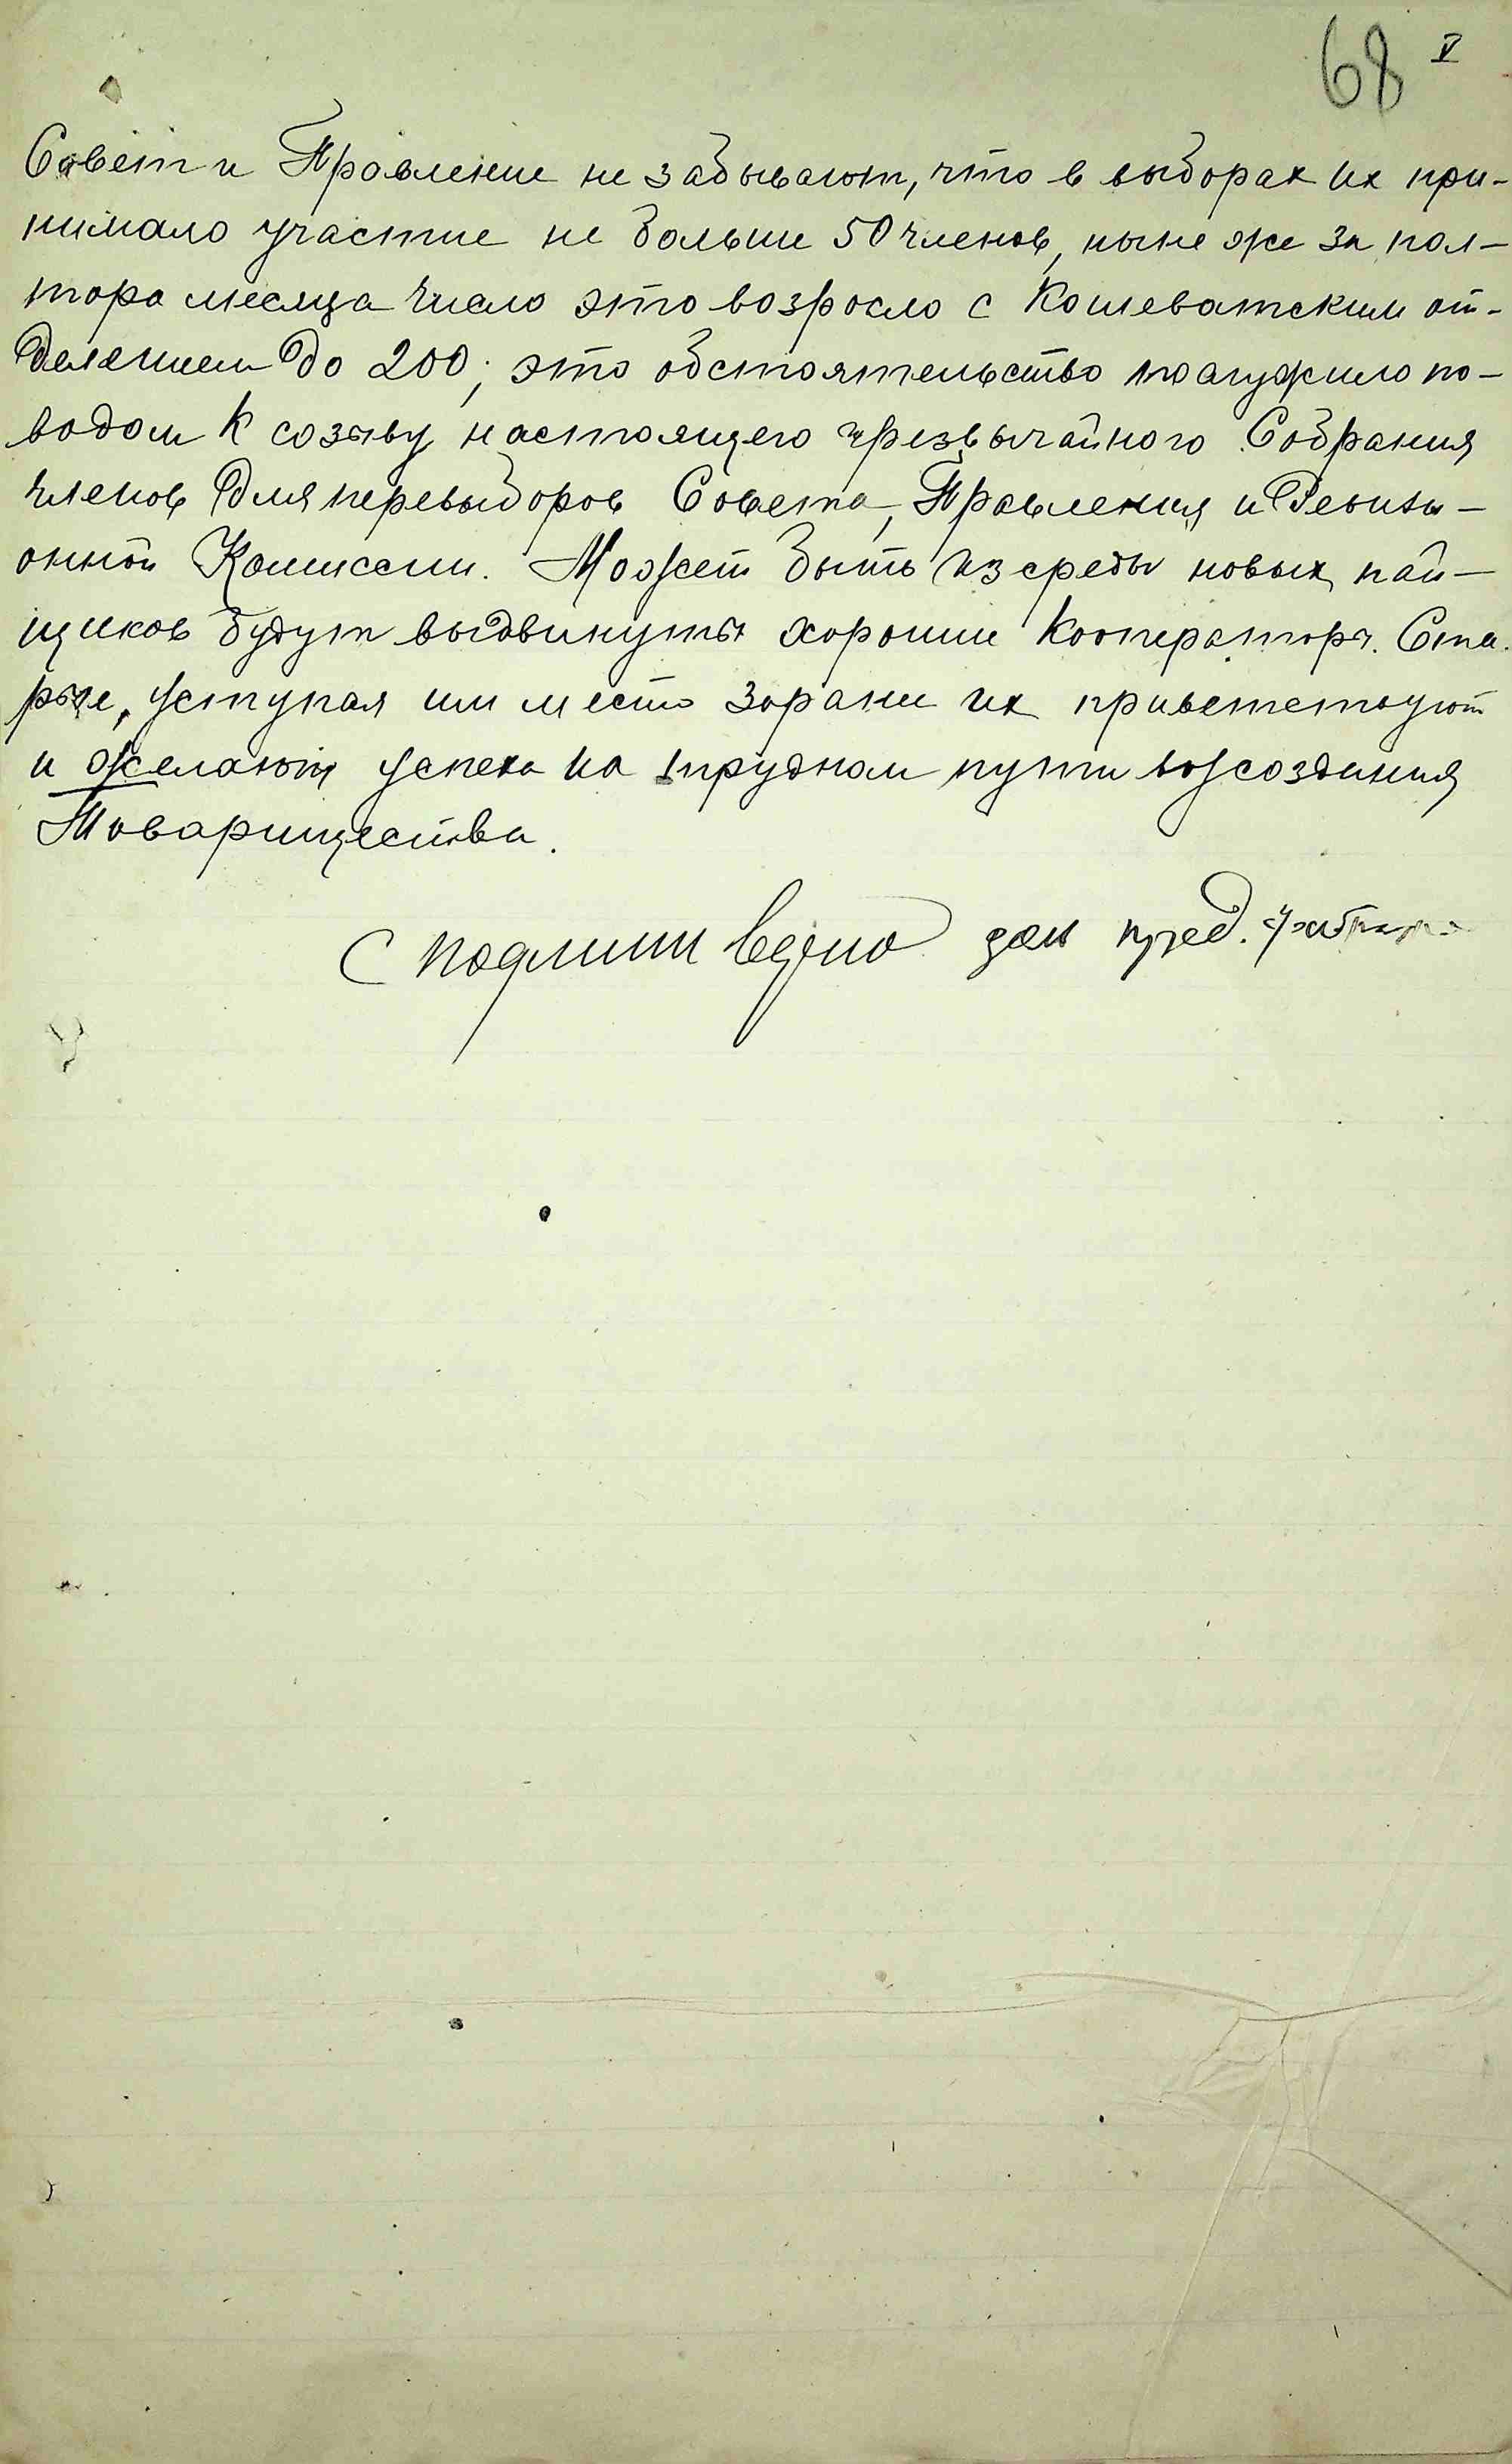 68 V
Совет и Правление не забывают, что в выборах их при-
нимало участие не больше 50 членов, ныне же за пол-
тора месяца число это возросло с Кошеватским от-
делением до 200; это обстоятельство послужило по-
водом к созыву настоящего чрезвычайного Собрания
членов для перевыборов Совета, Правления и Ревизи-
онной Комиссии. Может быть из среды новых пай-
щиков будут выдвинуты хорошие кооператоры. Ста-
рые, уступая им место зарание их приветствуют
и желают успеха на трудном пути воссоздания
Товарищества.
С подлин верно зам пред.